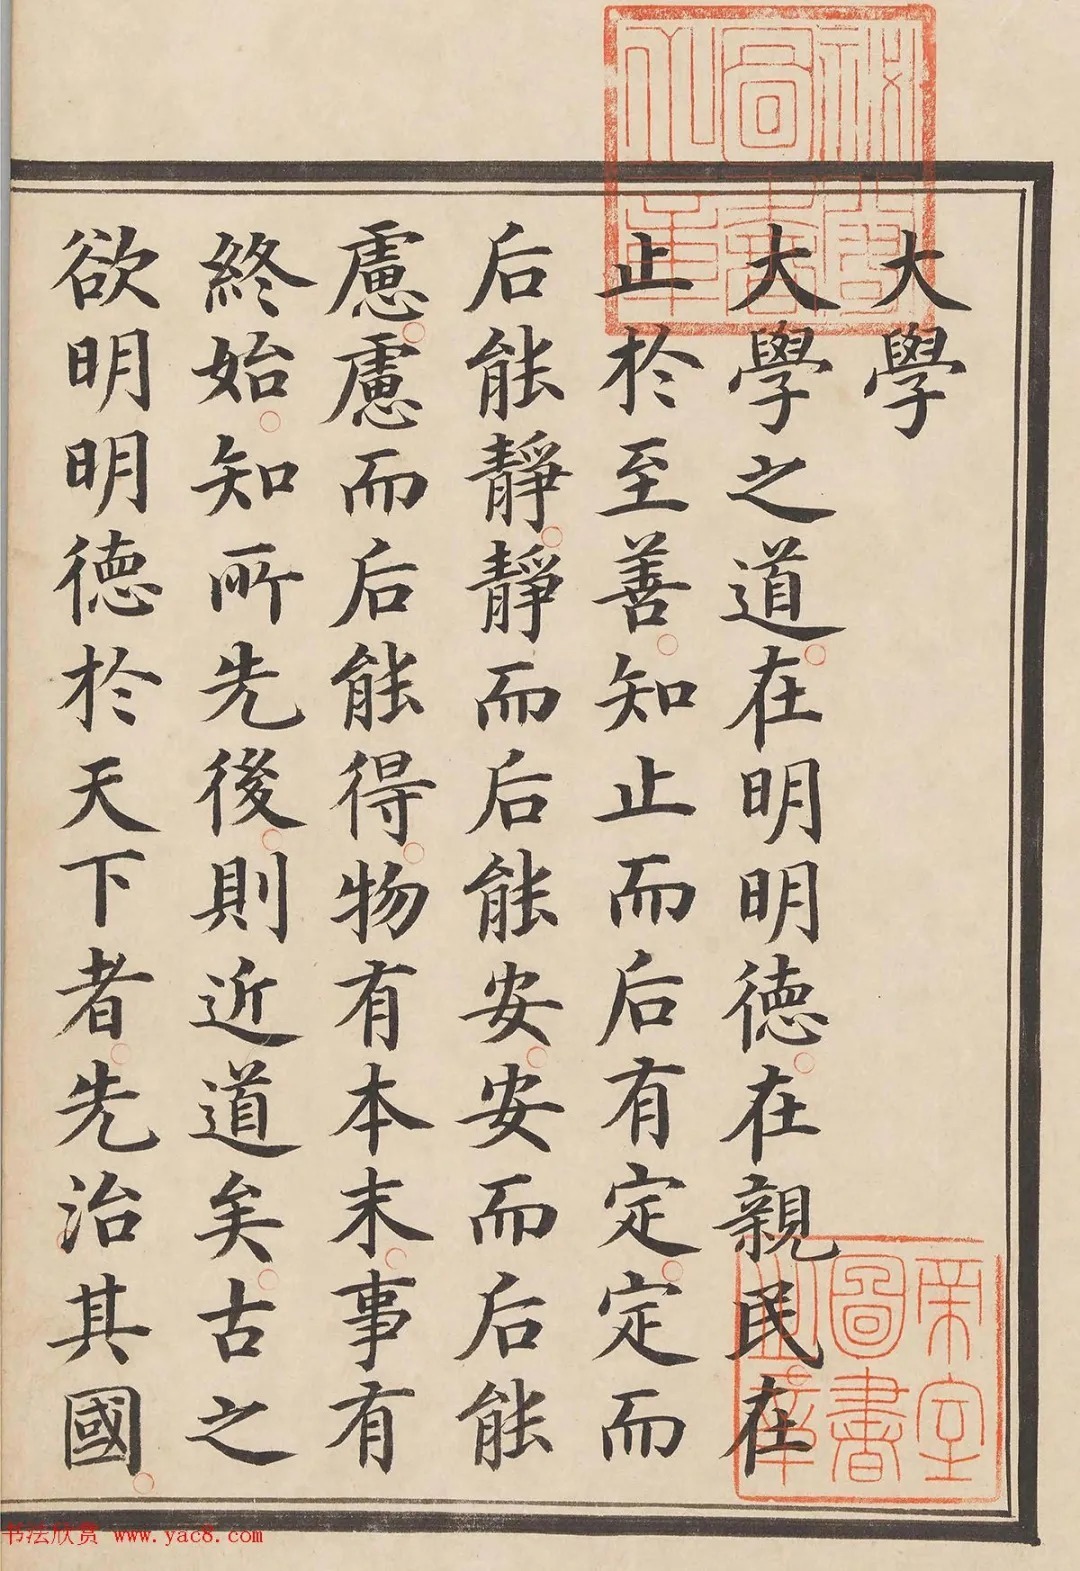 大學
大學之道在明明德在親民在
止於至善知止而后有定定而
后能靜靜而后能安安而后能
慮慮而后能得物有本末事有
終始知所先後則近道矣古之
欲明明德於天下者先治其國
秘閣圖書之章
帝室圖書之章
书法欣赏 www.yac8.com